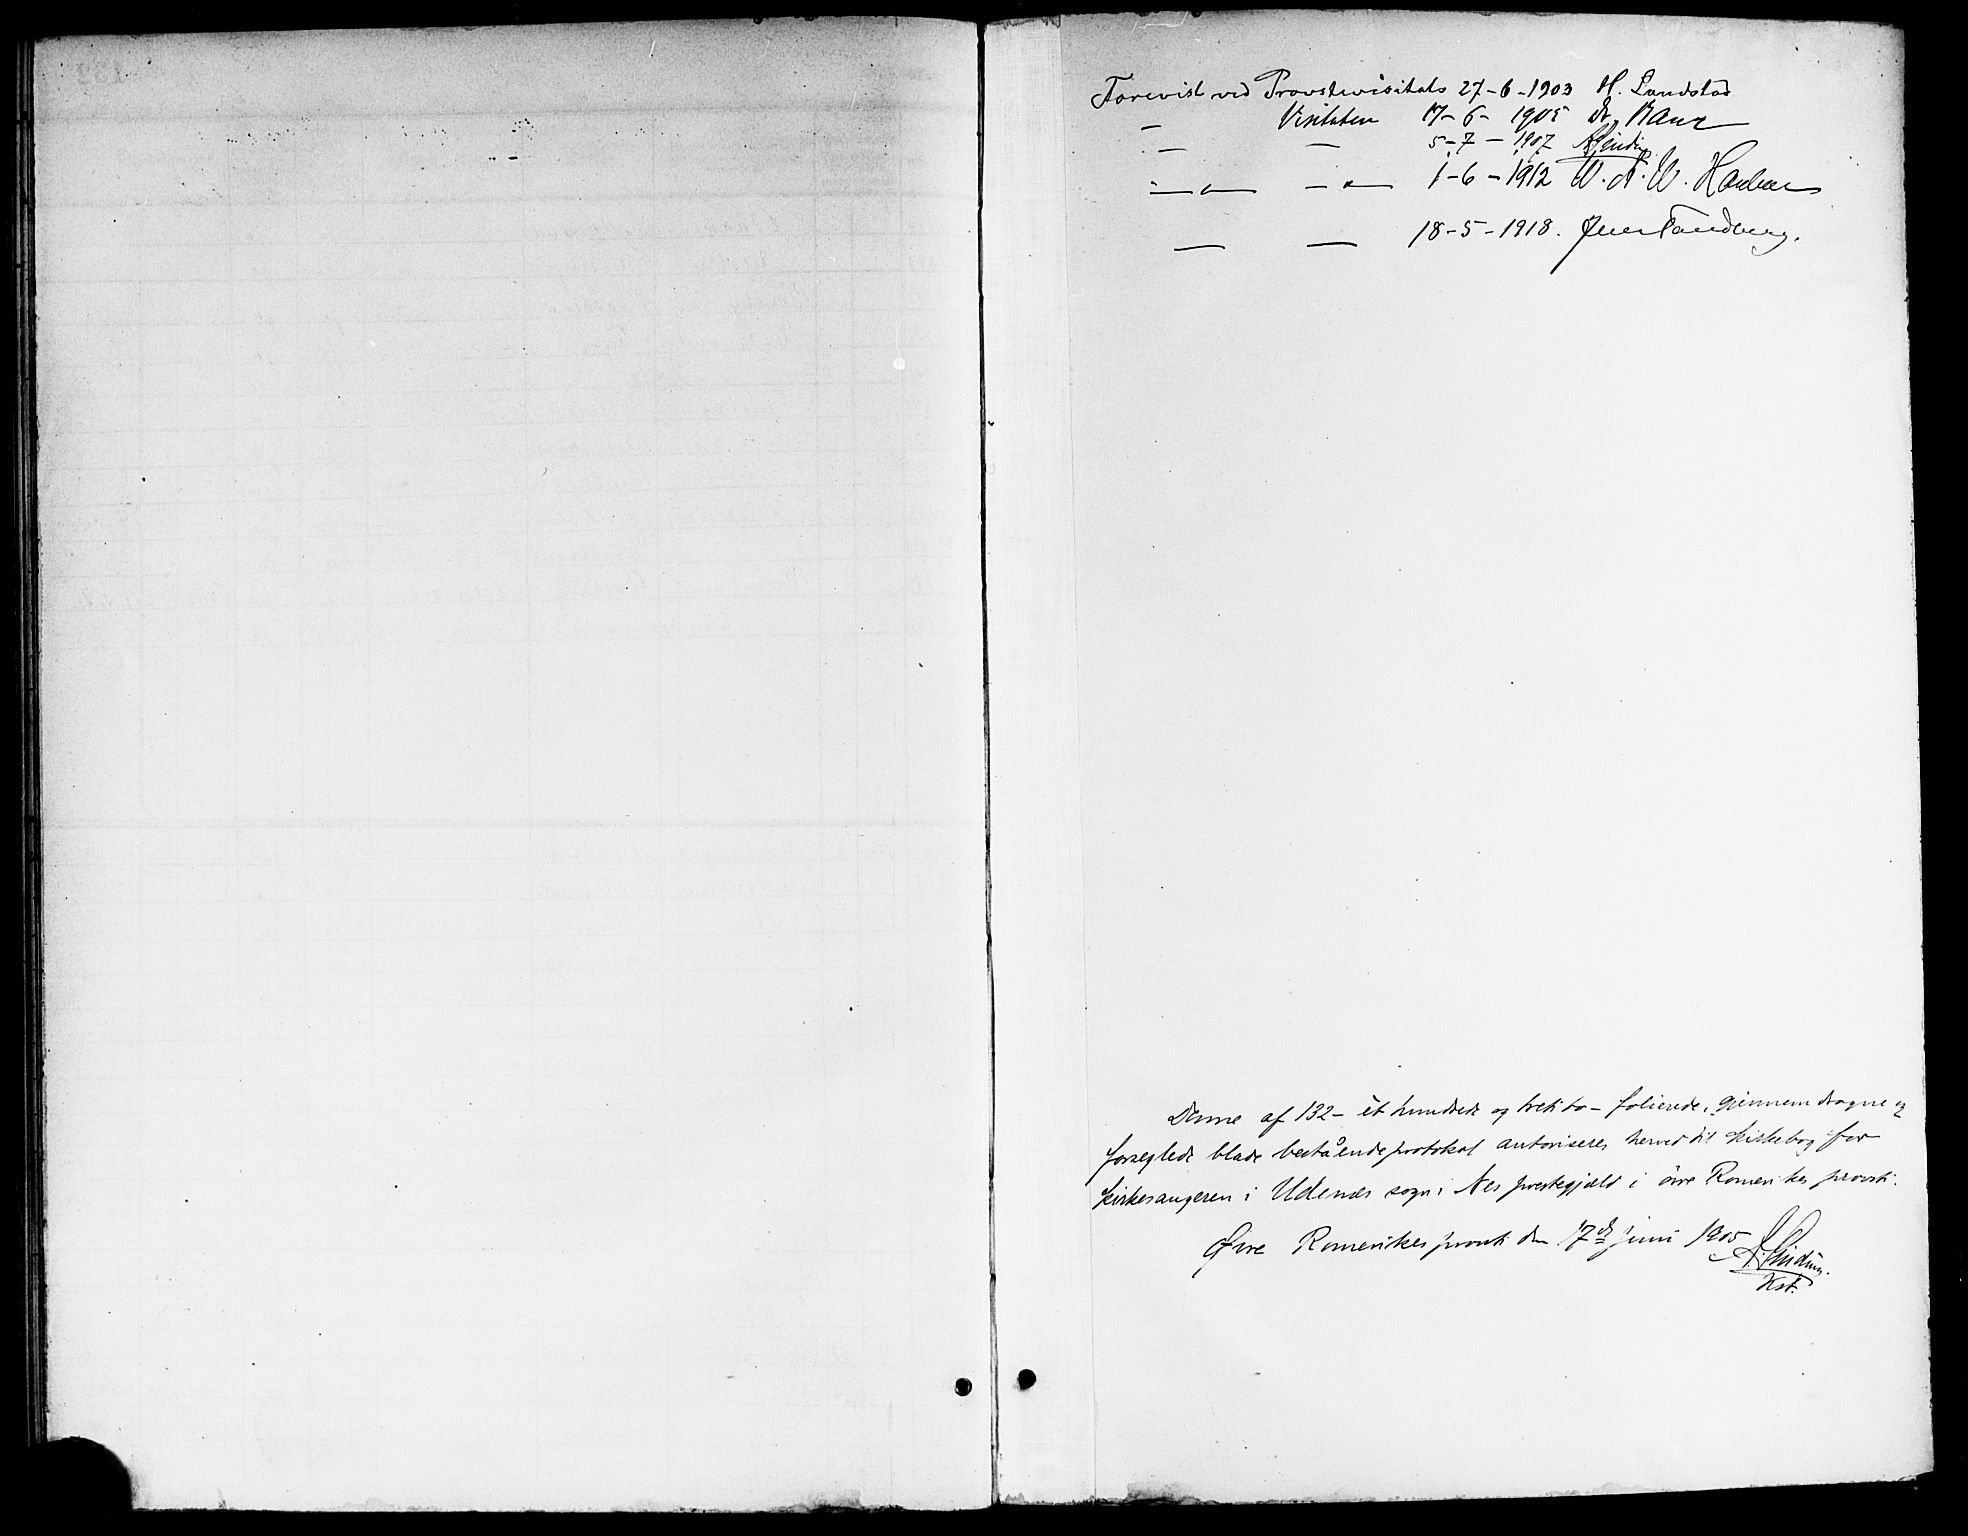 Forevist ved Provstevisitats 27-6-1903 H. Landstad
— Visitatsen 17-6-1905 Dr. Bang
— — 5-7-1907 ASinding
—"— —"— 1-6-1912 W. A. W.
— — 18-5-1918. Jens Tandberg.
Denne af 132 - ét hundrede og treti to - folierede, giennemdragne og
forseglede blade bestående protokol autoriseres herved til kirkebog for
kirkesangeren i Udenes sogn i Nes prestegjæld i øvre Romerikes provsti.
Øvre Romerikes provsti den 17de juni 1905
A. Sinding.
Kst.